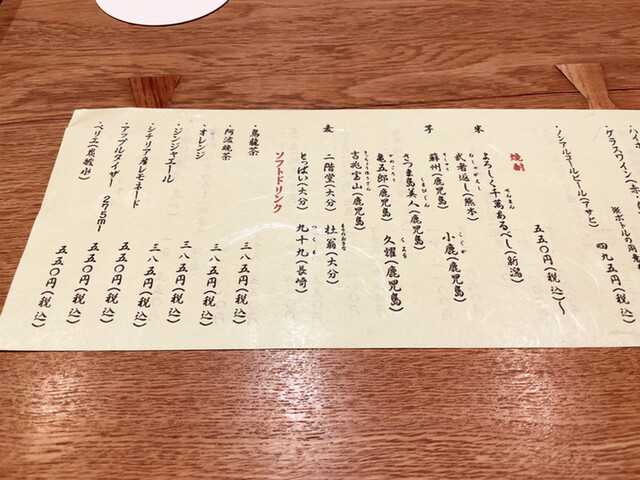 ハイボ
グラスワイン(赤・
※ボトルの用意
四九五円(税込)
・ノンアルコールビール(アサヒ)
五五〇円(税込)~
焼酎
米
よろしく千萬あるべし(新潟)
せんまん
武者返し(熊本)
むしゃがえし
小鹿(鹿児島)
こじか
芋
蘇州(鹿児島)
さつま島美人(鹿児島)
しまびじん
亀五郎(鹿児島)
かめごろう
久耀(鹿児島)
くよう
吉兆宝山(鹿児島)
きっちょうほうざん
麦
二階堂(大分)
杜翁(大分)
とっぱい(大分)
九十九(長崎)
つくも
ソフトドリンク
・烏龍茶
三八五円(税込)
・阿波晩茶
三八五円(税込)
・オレンジ
三八五円(税込)
・ジンジャエール
三八五円(税込)
・シチリア産レモネード
五五〇円(税込)
・アップルタイザー 275ml
五五〇円(税込)
・ペリエ(炭酸水)
五五〇円(税込)